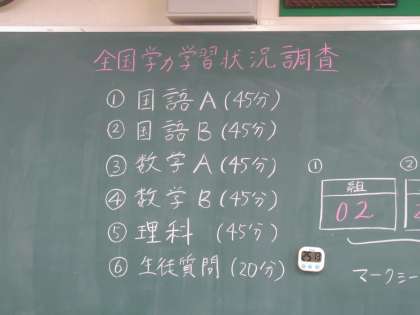 全国学力学習状況調査
① 国語A(45分)
② 国語B(45分)
③ 数学A(45分)
④ 数学B(45分)
⑤ 理科 (45分)
⑥ 生徒質問(20分)
①
組
02
②
マークシー